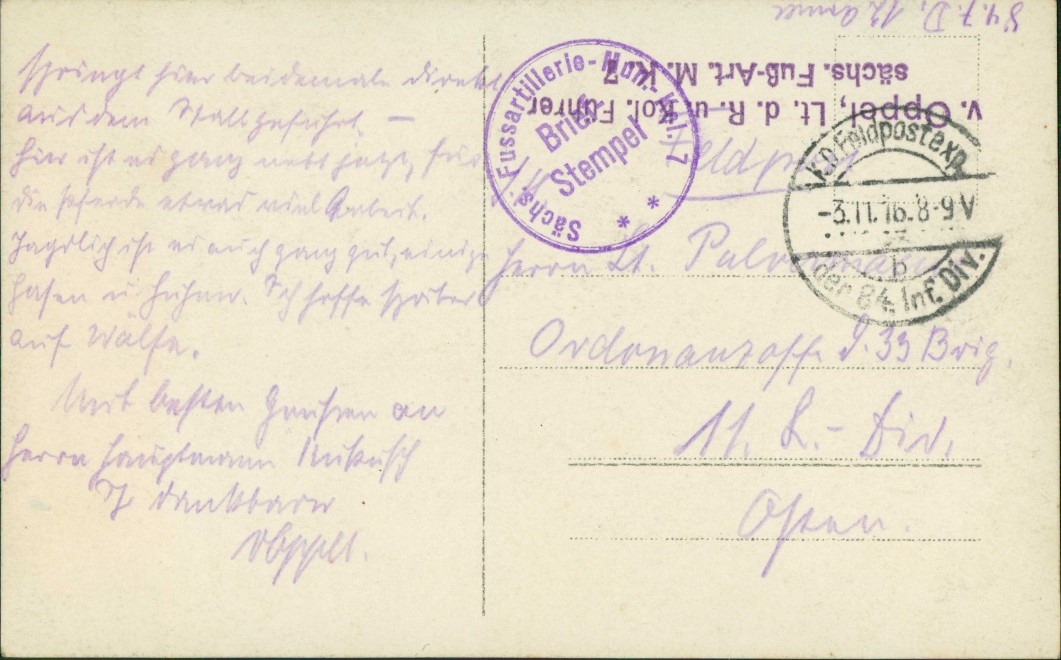 springt hier beidemale direkt
aus dem Stall geführt. —
Hier ist es ganz nett jetzt, für
die Pferde etwas viel Arbeit.
Jagdlich ist es auch ganz gut, einige
Hasen u Hühner. Ich hoffe später
auf Wölfe.
Mit besten Grüssen an
Herrn Hauptmann
Ihr dankbarer
vOppell.
84. I. D. 12 Armee
v. Oppel, Lt. d. R. u. Kol. Führer
sächs. Fuß-Art. M. K. 7
Sächs. Fussartillerie-Mun.-Kol. 7
Brief
Stempel
Feldpost
K.D. Feldpostexp.
-3.11.16. 8-9 V
b
der 84. Inf. Div.
Herrn Lt.
Ordonanzoff. d. 33 Brig.
11. L.- Div.
Osten.